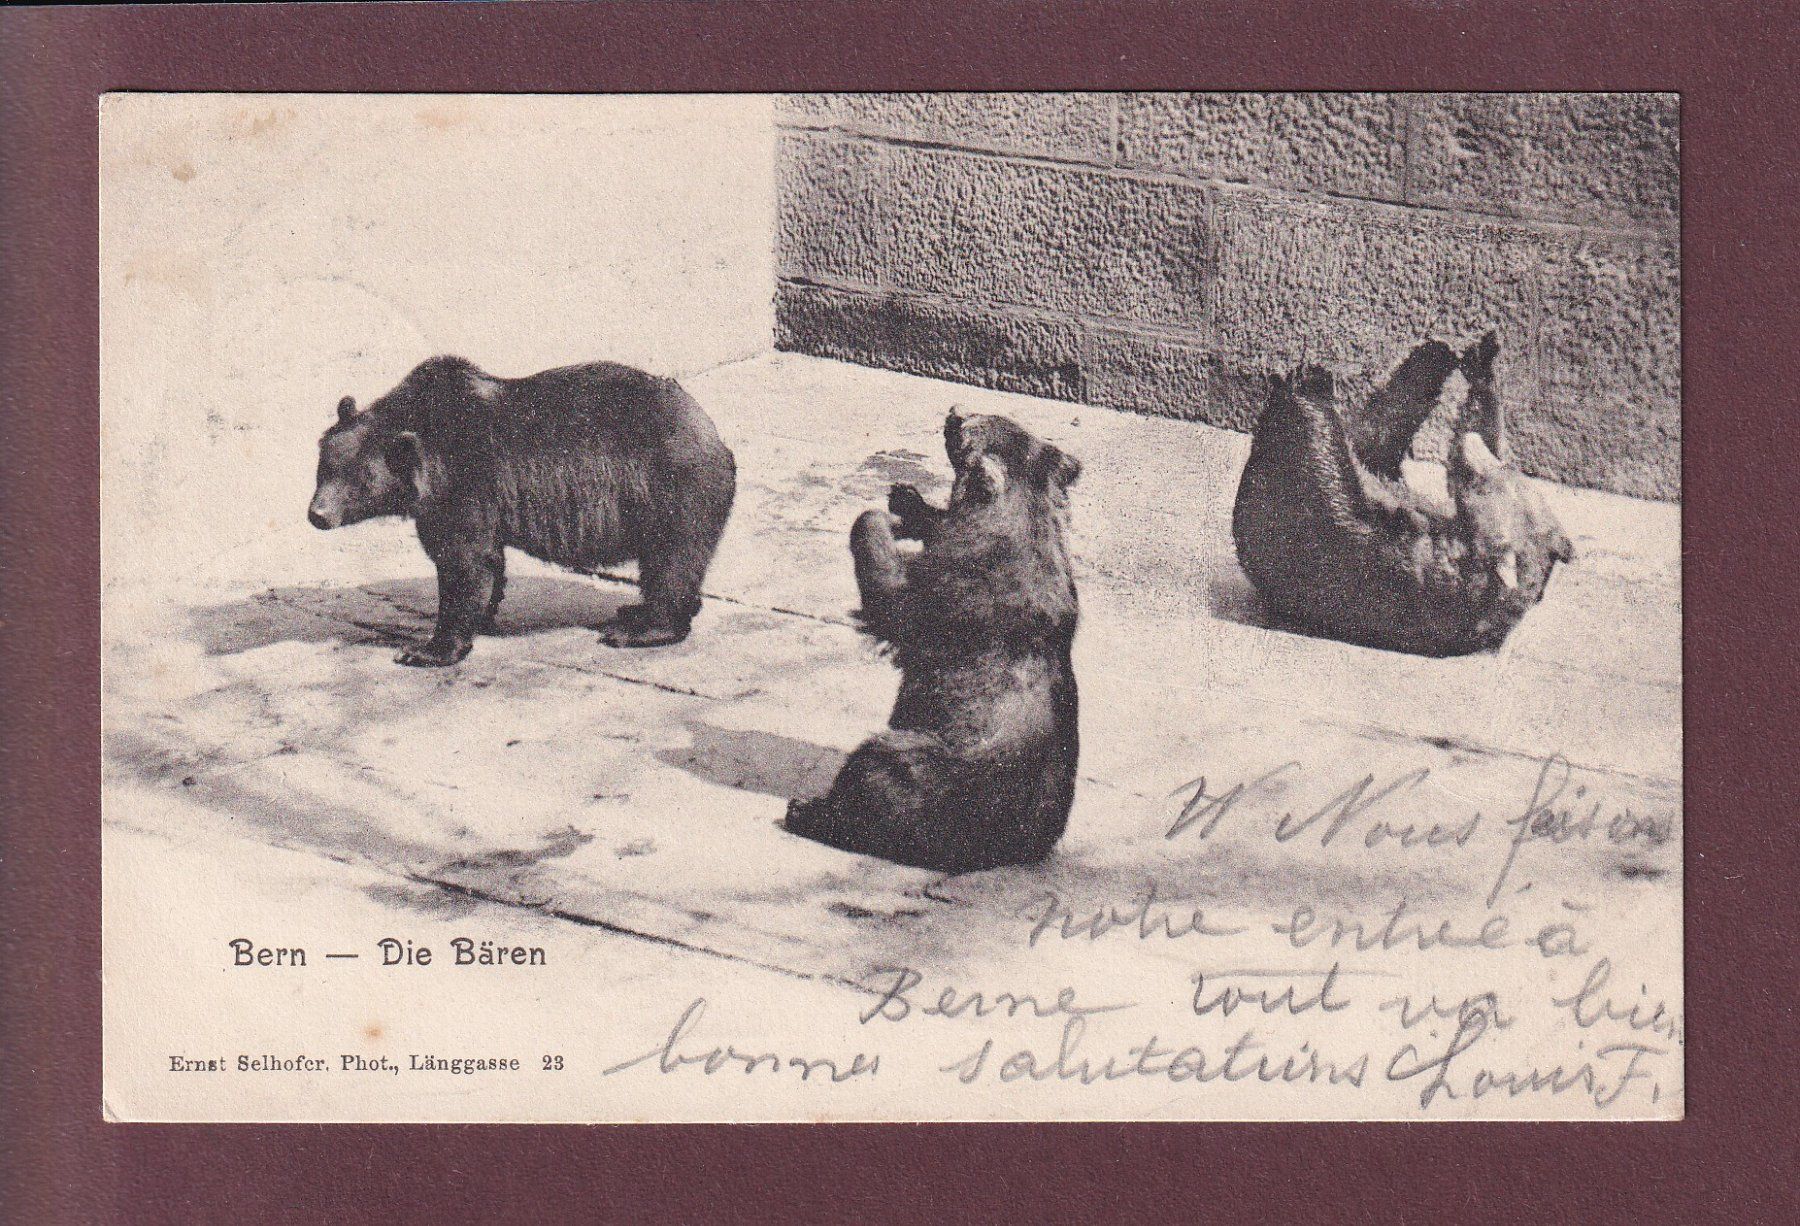 Bern — Die Bären
Ernst Selhofer, Phot., Länggasse 23
Nous faisons
notre entrée à
Berne tout va bien
bonnes salutations Louis F.